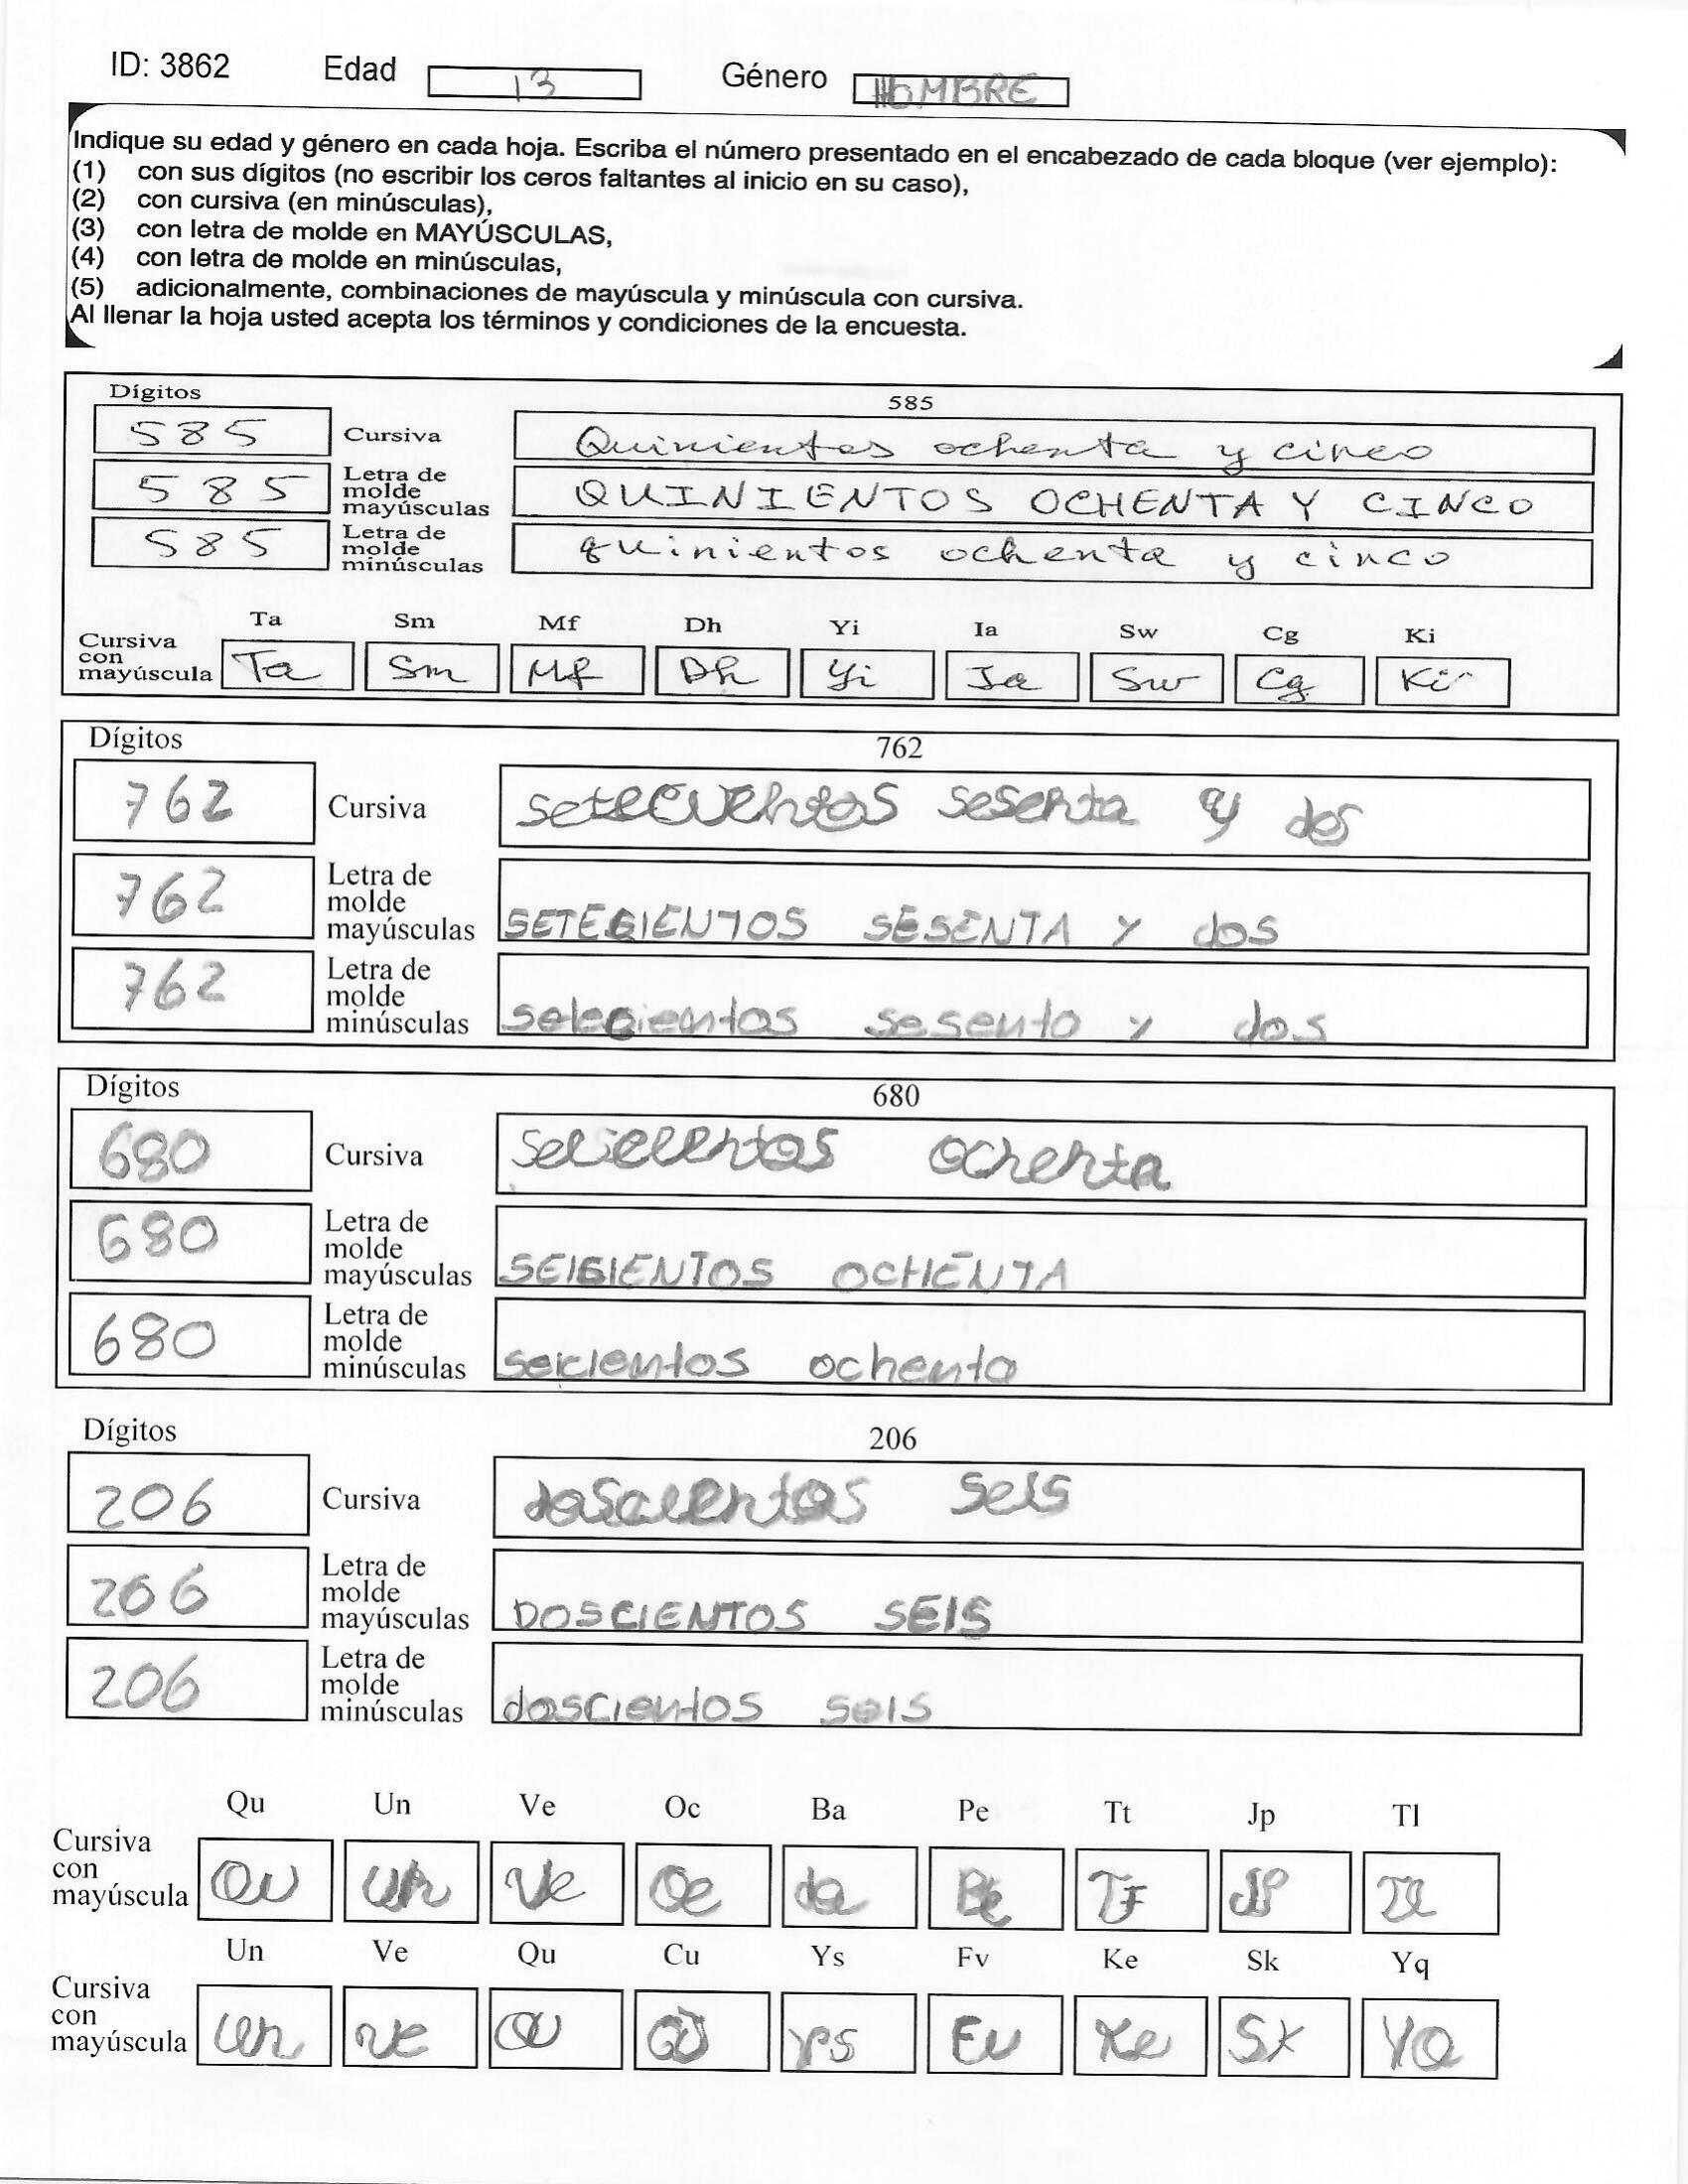 ID: 3862 Edad 13 Género HOMBRE
Indique su edad y género en cada hoja. Escriba el número presentado en el encabezado de cada bloque (ver ejemplo):
(1) con sus dígitos (no escribir los ceros faltantes al inicio en su caso),
(2) con cursiva (en minúsculas),
(3) con letra de molde en MAYÚSCULAS,
(4) con letra de molde en minúsculas,
(5) adicionalmente, combinaciones de mayúscula y minúscula con cursiva.
Al llenar la hoja usted acepta los términos y condiciones de la encuesta.
Dígitos 585
585 Cursiva Quinientos ochenta y cinco
585 Letra de molde mayúsculas QUINIENTOS OCHENTA Y CINCO
585 Letra de molde minúsculas quinientos ochenta y cinco
Ta Sm Mf Dh Yi Ia Sw Cg Ki
Cursiva con mayúscula Ta Sm Mf Dh Yi Ia Sw Cg Ki
Dígitos 762
762 Cursiva setecuentos sesenta y dos
762 Letra de molde mayúsculas SETECIENTOS SESENTA Y dOS
762 Letra de molde minúsculas setecientos sesenta y dos
Dígitos 680
680 Cursiva ochenta
680 Letra de molde mayúsculas SEICIENTOS OCHENTA
680 Letra de molde minúsculas seicientos ochenta
Dígitos 206
206 Cursiva doscientos seis
206 Letra de molde mayúsculas DOSCIENTOS SEIS
206 Letra de molde minúsculas doscientos seis
Qu Un Ve Oc Ba Pe Tt Jp Tl
Cursiva con mayúscula Qu Un Ve Oc Pe Tt Jp Tl
Un Ve Qu Cu Ys Fv Ke Sk Yq
Cursiva con mayúscula Un Ve Qu Cu Ys Fv Ke Sk YQ